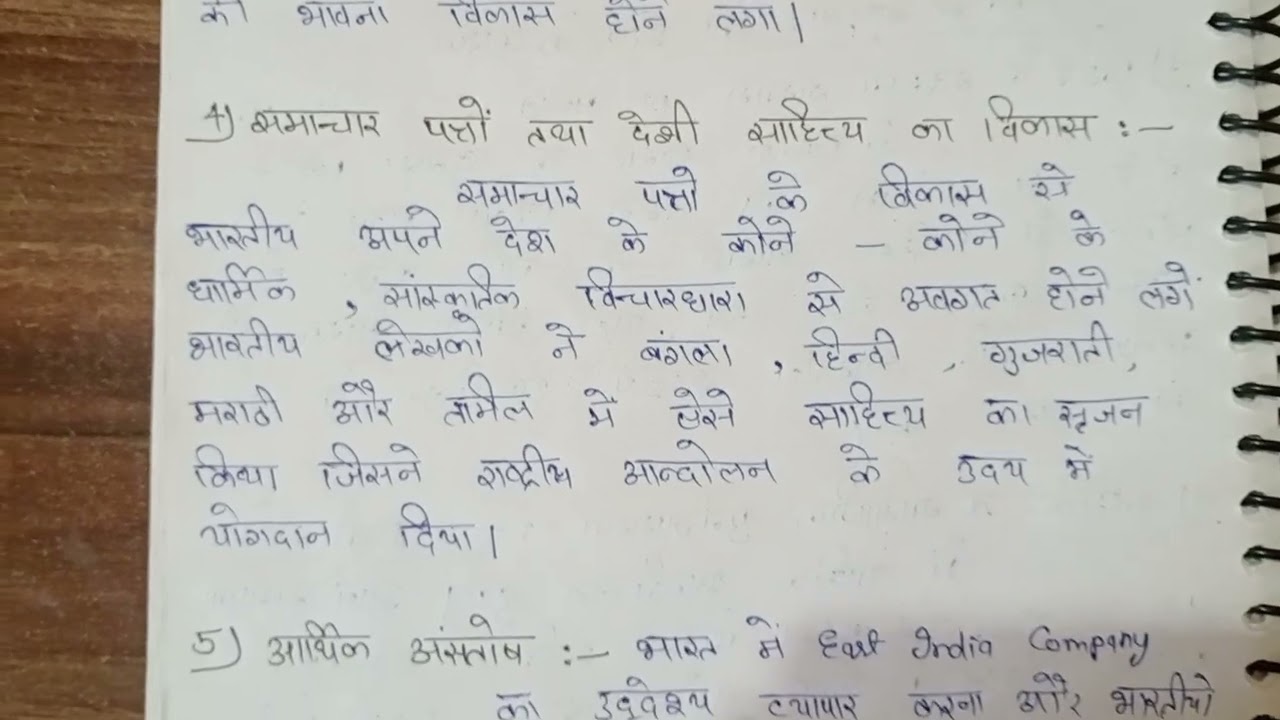 की भावना विकास होने लगा।
4) समाचार पत्रों तथा देशी साहित्य का विकास :-
समाचार पत्रो के विकास से
भारतीय अपने देश के कोने - कोने के
धार्मिक , सांस्कृतिक विचारधारा से अवगत होने लगे
भारतीय लेखको ने बंगला , हिन्दी , गुजराती ,
मराठी और तामिल में ऐसे साहित्य का सृजन
किया जिसने राष्ट्रीय आन्दोलन के उदय में
योगदान दिया।
5) आर्थिक असंतोष :- भारत में East India Company
का उद्देश्य व्यापार करना और भारतीयो